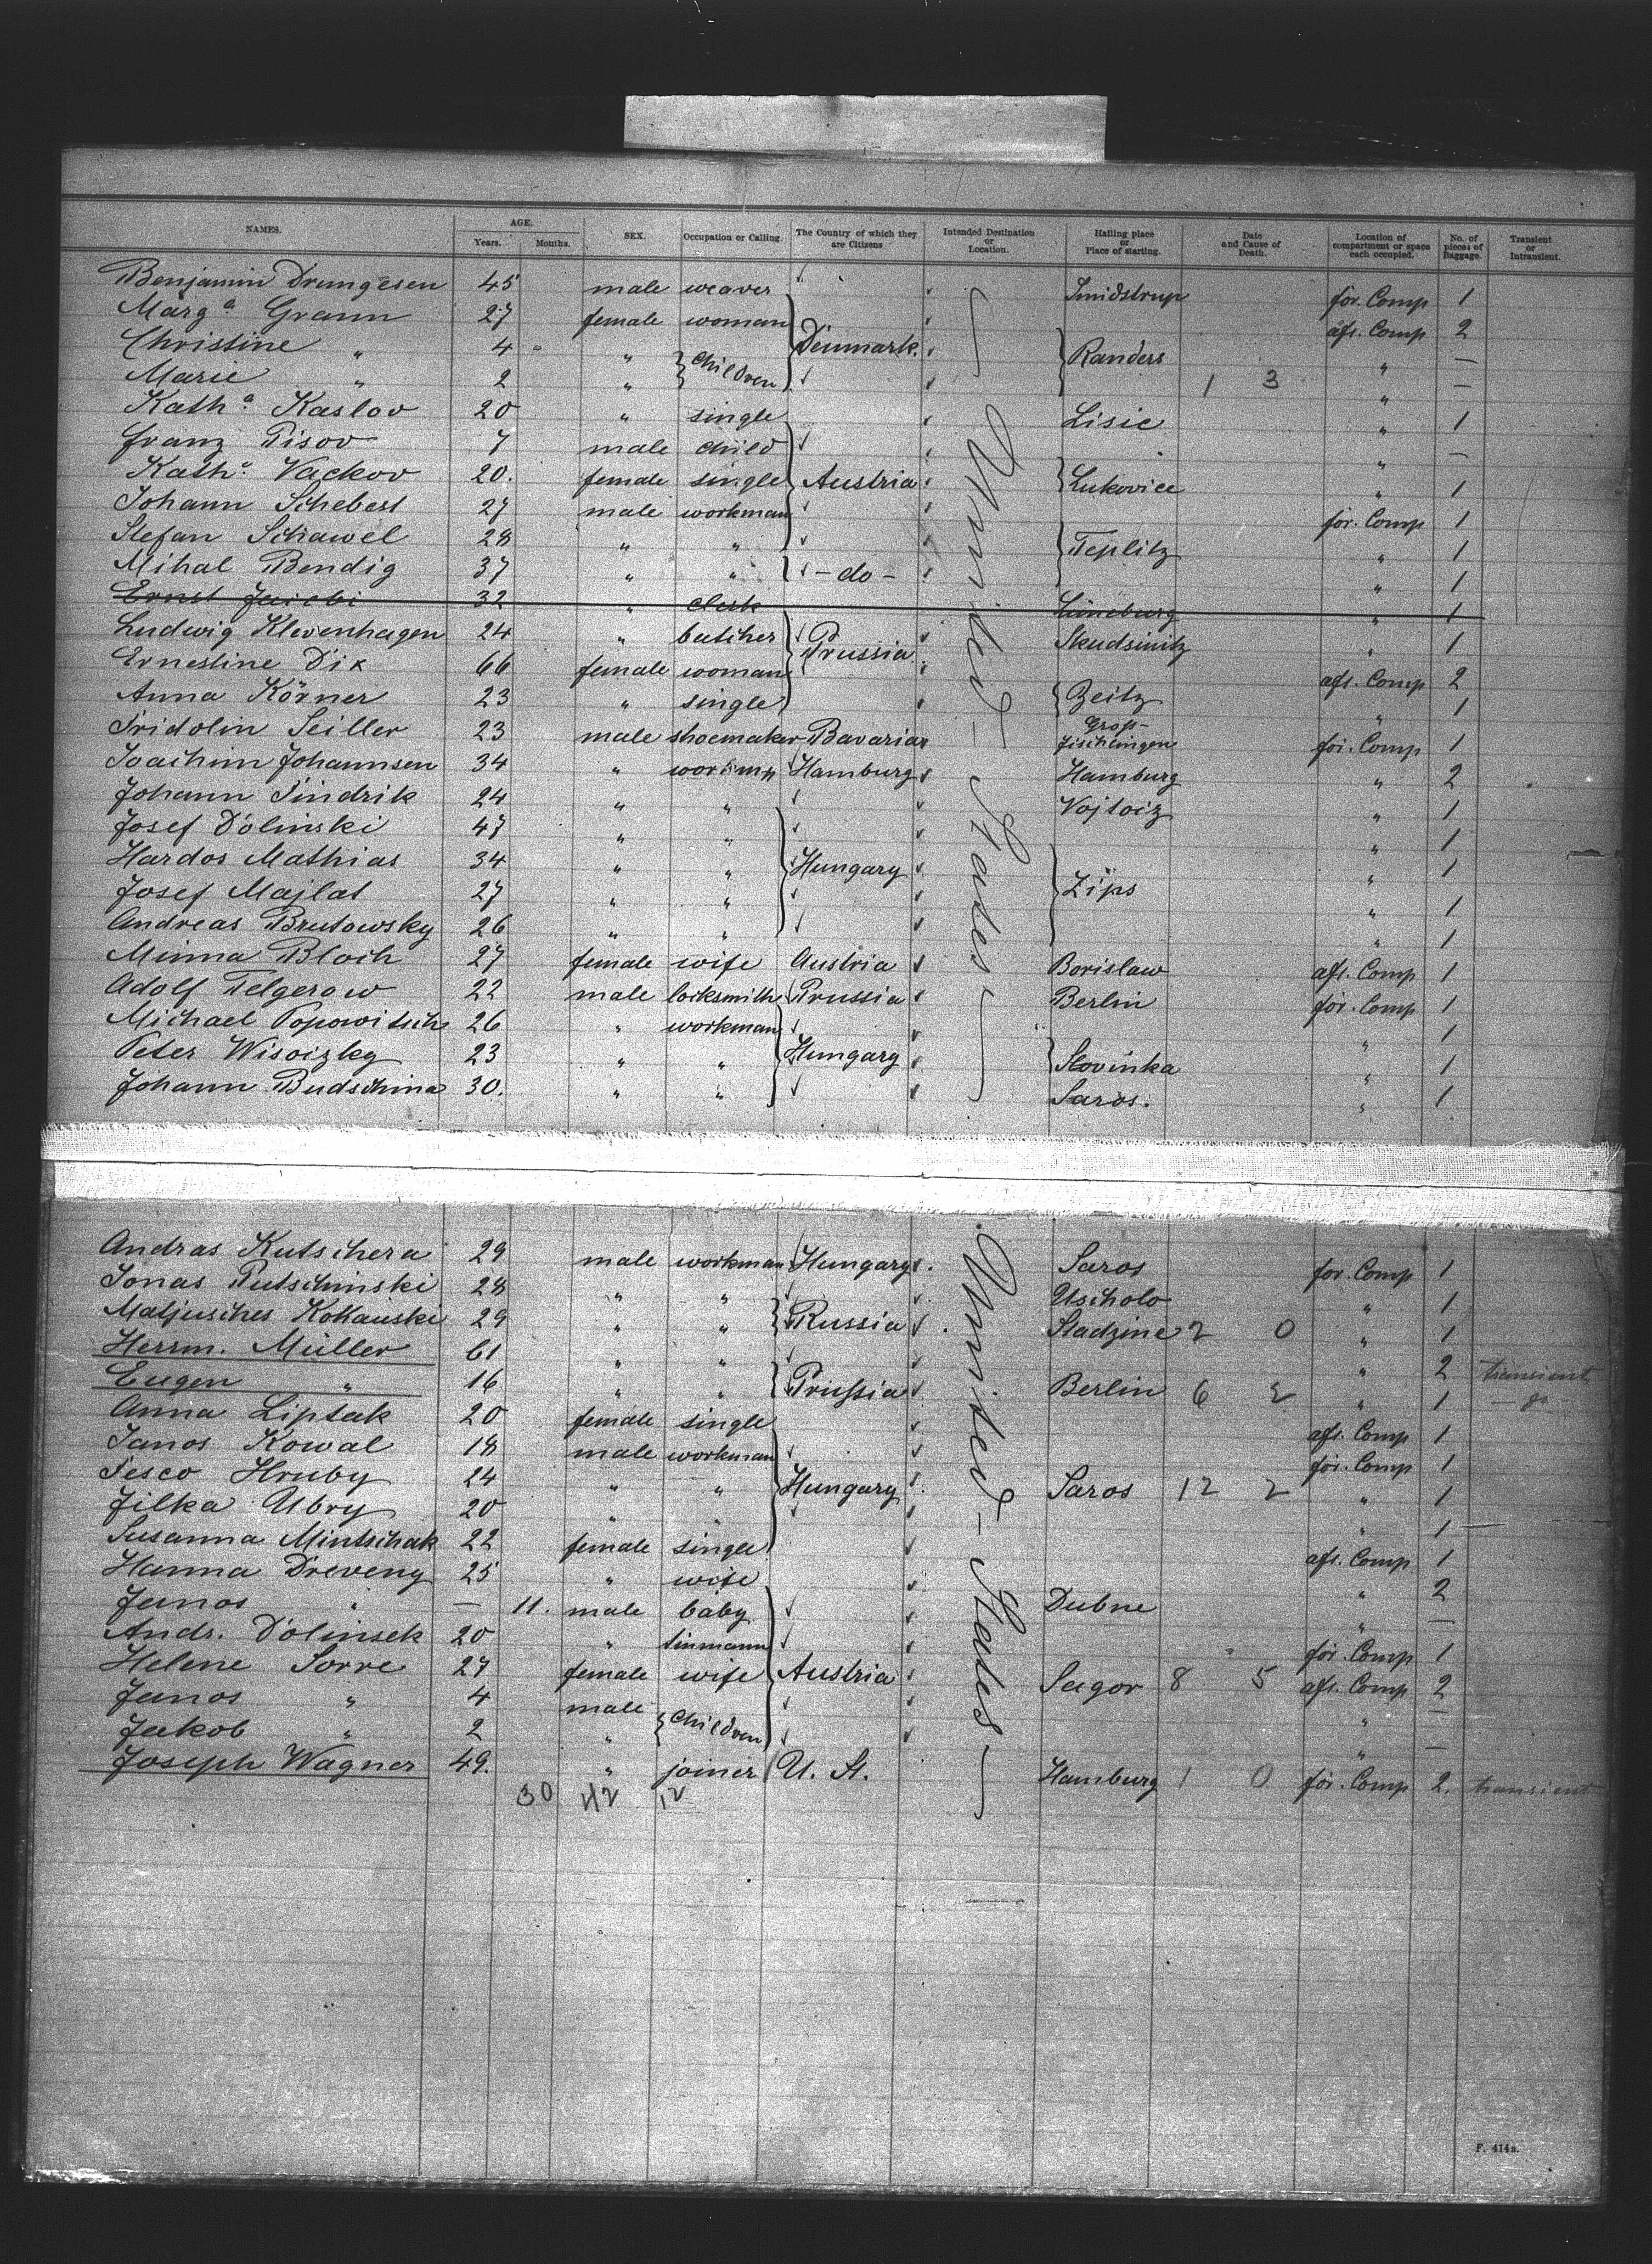 NAMES. AGE. Years. Months. SEX. Occupation or Calling. The Country of which they are Citizens Intended Destination or Location. Hailing place or Place of starting. Date and Cause of Death. Location of compartment or space each occupied. No. of pieces of Baggage. Transient or Intransient.
Benjamin Drungesen 45 male weaver Smidstrup for. Comp 1
Marg.a Grann 27 female woman aft. Comp 2
Christine " 4 " Children Denmark. Randers " —
Marie " 2 " 1 3 " —
Kath.a Kaslov 20 " single Lisic " 1
Franz Pisov 7 male child " —
Kath.a Vackov 20. female single Austria Lukovice " 1
Johann Schebest 27 male workman for. Comp 1
Stefan Schawel 28 " " Teplitz " 1
Mihal Bendig 37 " " - do - " 1
Ernst 32 " clerk Lüneburg " 1
Ludwig Klevenhagen 24 " butcher Prussia Skudsinitz " 1
Ernestine Dix 66 female woman aft. Comp 2
Anna Körner 23 " single Zeitz " 1
Fridolin Seiller 23 male shoemaker Bavaria Gross- Fischlingen for. Comp 1
Joachim Johannsen 34 " workman Hamburg Hamburg " 2
Johann Findrik 24 " " Vojtoiz " 1
Josef Dolinski 47 " " " 1
Hardos Mathias 34 " " Hungary " 1
Josef Majlat 27 " " Zips " 1
Andreas Brutowsky 26 " " " 1
Minna Bloch 27 female wife Austria Borislaw aft. Comp 1
Adolf Telgerow 22 male locksmith Prussia Berlin for. Comp 1
Michael Popowitsch 26 " workman " 1
Peter Wisoizky 23 " " Hungary Slovinka " 1
Johann Budschina 30. " " Saros. " 1
United - States
Andras Kutschera 29 male workman Hungary Saros for. Comp 1
Jonas Putschinski 28 " " Uscholo " 1
Matjusches Kokauski 29 " " Russia Stadzine 2 0 " 1
Herrm. Müller 61 " " " 2 transient
Eugen " 16 " " Prussia Berlin 6 2 " 1 — do —
Anna Liptak 20 female single aft. Comp 1
Janos Kowal 18 male workman for. Comp 1
Fesco Hruby 24 " " Hungary Saros 12 2 " 1
Jilka Ubry 20 " " " 1
Susanna Mintschak 22 female single aft. Comp 1
Hanna Dreveny 25 " wife " 2
Janos " — 11. male baby Dubne " —
Andr. Dolinsek 20 " tinmann for. Comp 1
Helene Sorre 27 female wife Austria Sagor 8 5 aft. Comp 2
Janos " 4 male Children " —
Jakob " 2 " " —
Joseph Wagner 49. " joiner U. St. Hamburg 1 0 for. Comp 2. transient
30 42 12
United - States
F. 414a.